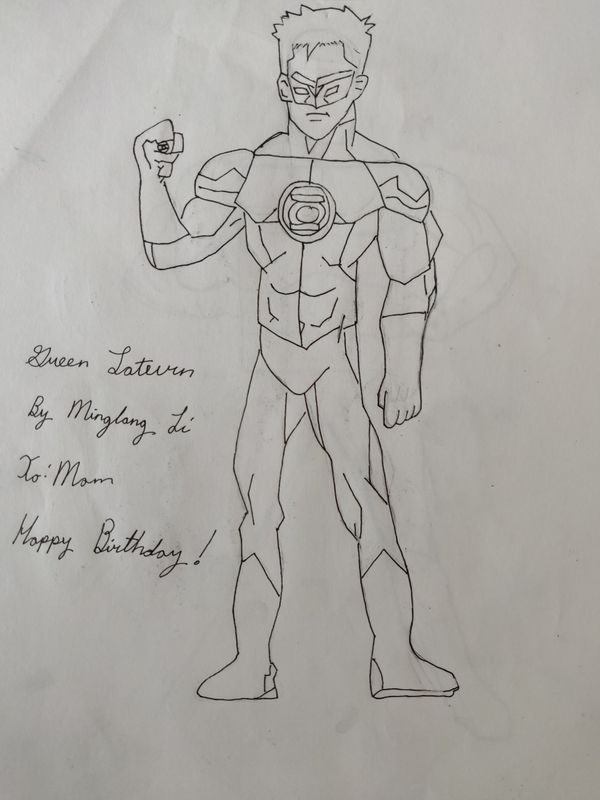 Green Latevrn
By Minglang Li
To: Mom
Happy Birthday!